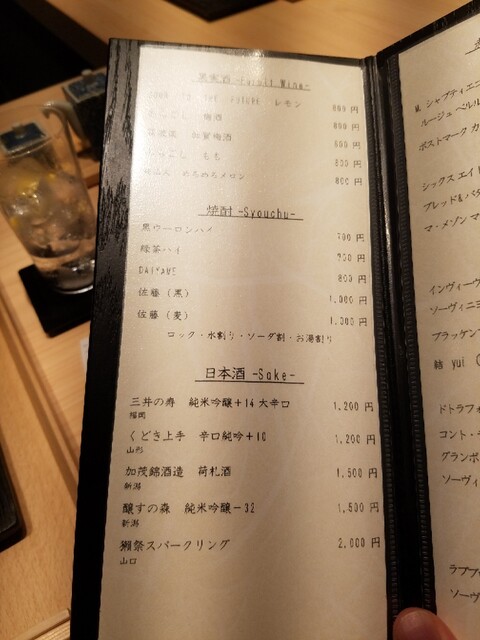 果実酒 -Fruit Wine-
レモン 800 円
梅酒 800 円
加賀梅酒 800 円
もも 800 円
めろめろメロン 800 円
焼酎 -Syouchu-
黒ウーロンハイ 700 円
緑茶ハイ 円
DAIYAME 800 円
佐藤（黒） 1,000 円
佐藤（麦） 円
ロック・水割り・ソーダ割・お湯割り
日本酒 -Sake-
三井の寿 純米吟醸＋14 大辛口 1,200 円
福岡
くどき上手 辛口純吟＋10 1,200 円
山形
加茂錦酒造 荷札酒 1,500 円
新潟
醸すの森 純米吟醸－32 1,500 円
新潟
獺祭スパークリング 2,000 円
山口
M. シャプティエ
ルージュ ベルル
ポストマーク カ
シックス エイト
ブレッド&バタ
マ・メゾン マ
インヴィーヴ
ソーヴィニヨ
ブラッケン
結 yui
ドトラフォ
コント・
グランポ
ソーヴィ
ラブブ
ソーヴ